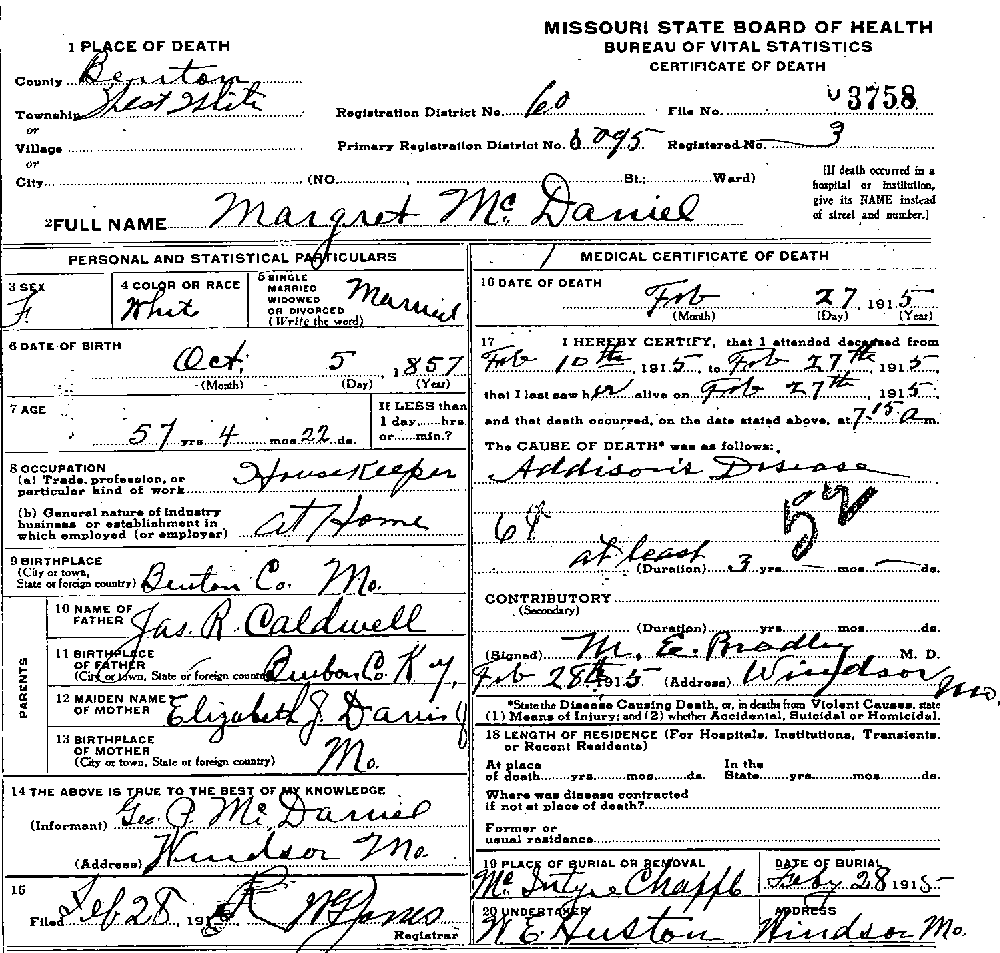 MISSOURI STATE BOARD OF HEALTH
BUREAU OF VITAL STATISTICS
CERTIFICATE OF DEATH
1 PLACE OF DEATH
County Benton
Township
or
Village
or
City (NO. , St.; Ward)
Registration District No. 60 File No. 3758
Primary Registration District No. 6095 Registered No. 3
[If death occurred in a
hospital or institution,
give its NAME instead
of street and number.]
2 FULL NAME Margret Mc Daniel
PERSONAL AND STATISTICAL PARTICULARS
3 SEX F.
4 COLOR OR RACE Whit
5 SINGLE
MARRIED
WIDOWED
OR DIVORCED
(Write the word) Married
6 DATE OF BIRTH
Oct. 5, 1857
(Month) (Day) (Year)
7 AGE
57 yrs. 4 mos. 22 ds.
If LESS than
1 day, hrs.
or min.?
8 OCCUPATION
(a) Trade, profession, or
particular kind of work Housekeeper
(b) General nature of industry
business or establishment in
which employed (or employer) at Home
9 BIRTHPLACE
(City or town,
State or foreign country) Benton Co. Mo.
PARENTS
10 NAME OF
FATHER Jas. R. Caldwell
11 BIRTHPLACE
OF FATHER
(City or town, State or foreign country) Co. Ky.
12 MAIDEN NAME
OF MOTHER Elizabeth J. Davis
13 BIRTHPLACE
OF MOTHER
(City or town, State or foreign country) Mo.
14 THE ABOVE IS TRUE TO THE BEST OF MY KNOWLEDGE
(Informant) Geo. P. Mc Daniel
(Address) Windsor Mo.
15
Filed Feb 28, 191
Registrar
MEDICAL CERTIFICATE OF DEATH
16 DATE OF DEATH
Feb 27, 1915
(Month) (Day) (Year)
17 I HEREBY CERTIFY, that I attended deceased from
Feb 10th, 1915, to Feb 27th, 1915
that I last saw her alive on Feb 27th, 1915
and that death occurred, on the date stated above, at 7.15 a m.
The CAUSE OF DEATH* was as follows:
Addison's Disease
52
at least
(Duration) 3 yrs. — mos. — ds.
CONTRIBUTORY
(Secondary)
(Duration) yrs. mos. ds.
(Signed) M. E. Bradley M. D.
Feb 28th 1915 (Address) Windsor Mo.
*State the Disease Causing Death, or, in deaths from Violent Causes, state
(1) Means of Injury; and (2) whether Accidental, Suicidal or Homicidal.
18 LENGTH OF RESIDENCE (For Hospitals, Institutions, Transients,
or Recent Residents)
At place In the
of death yrs. mos. ds. State yrs. mos. ds.
Where was disease contracted
if not at place of death?
Former or
usual residence
19 PLACE OF BURIAL OR REMOVAL
Mc Intyre Chappl
DATE OF BURIAL
Feby 28 1915
20 UNDERTAKER
W E Huston
ADDRESS
Windsor Mo.